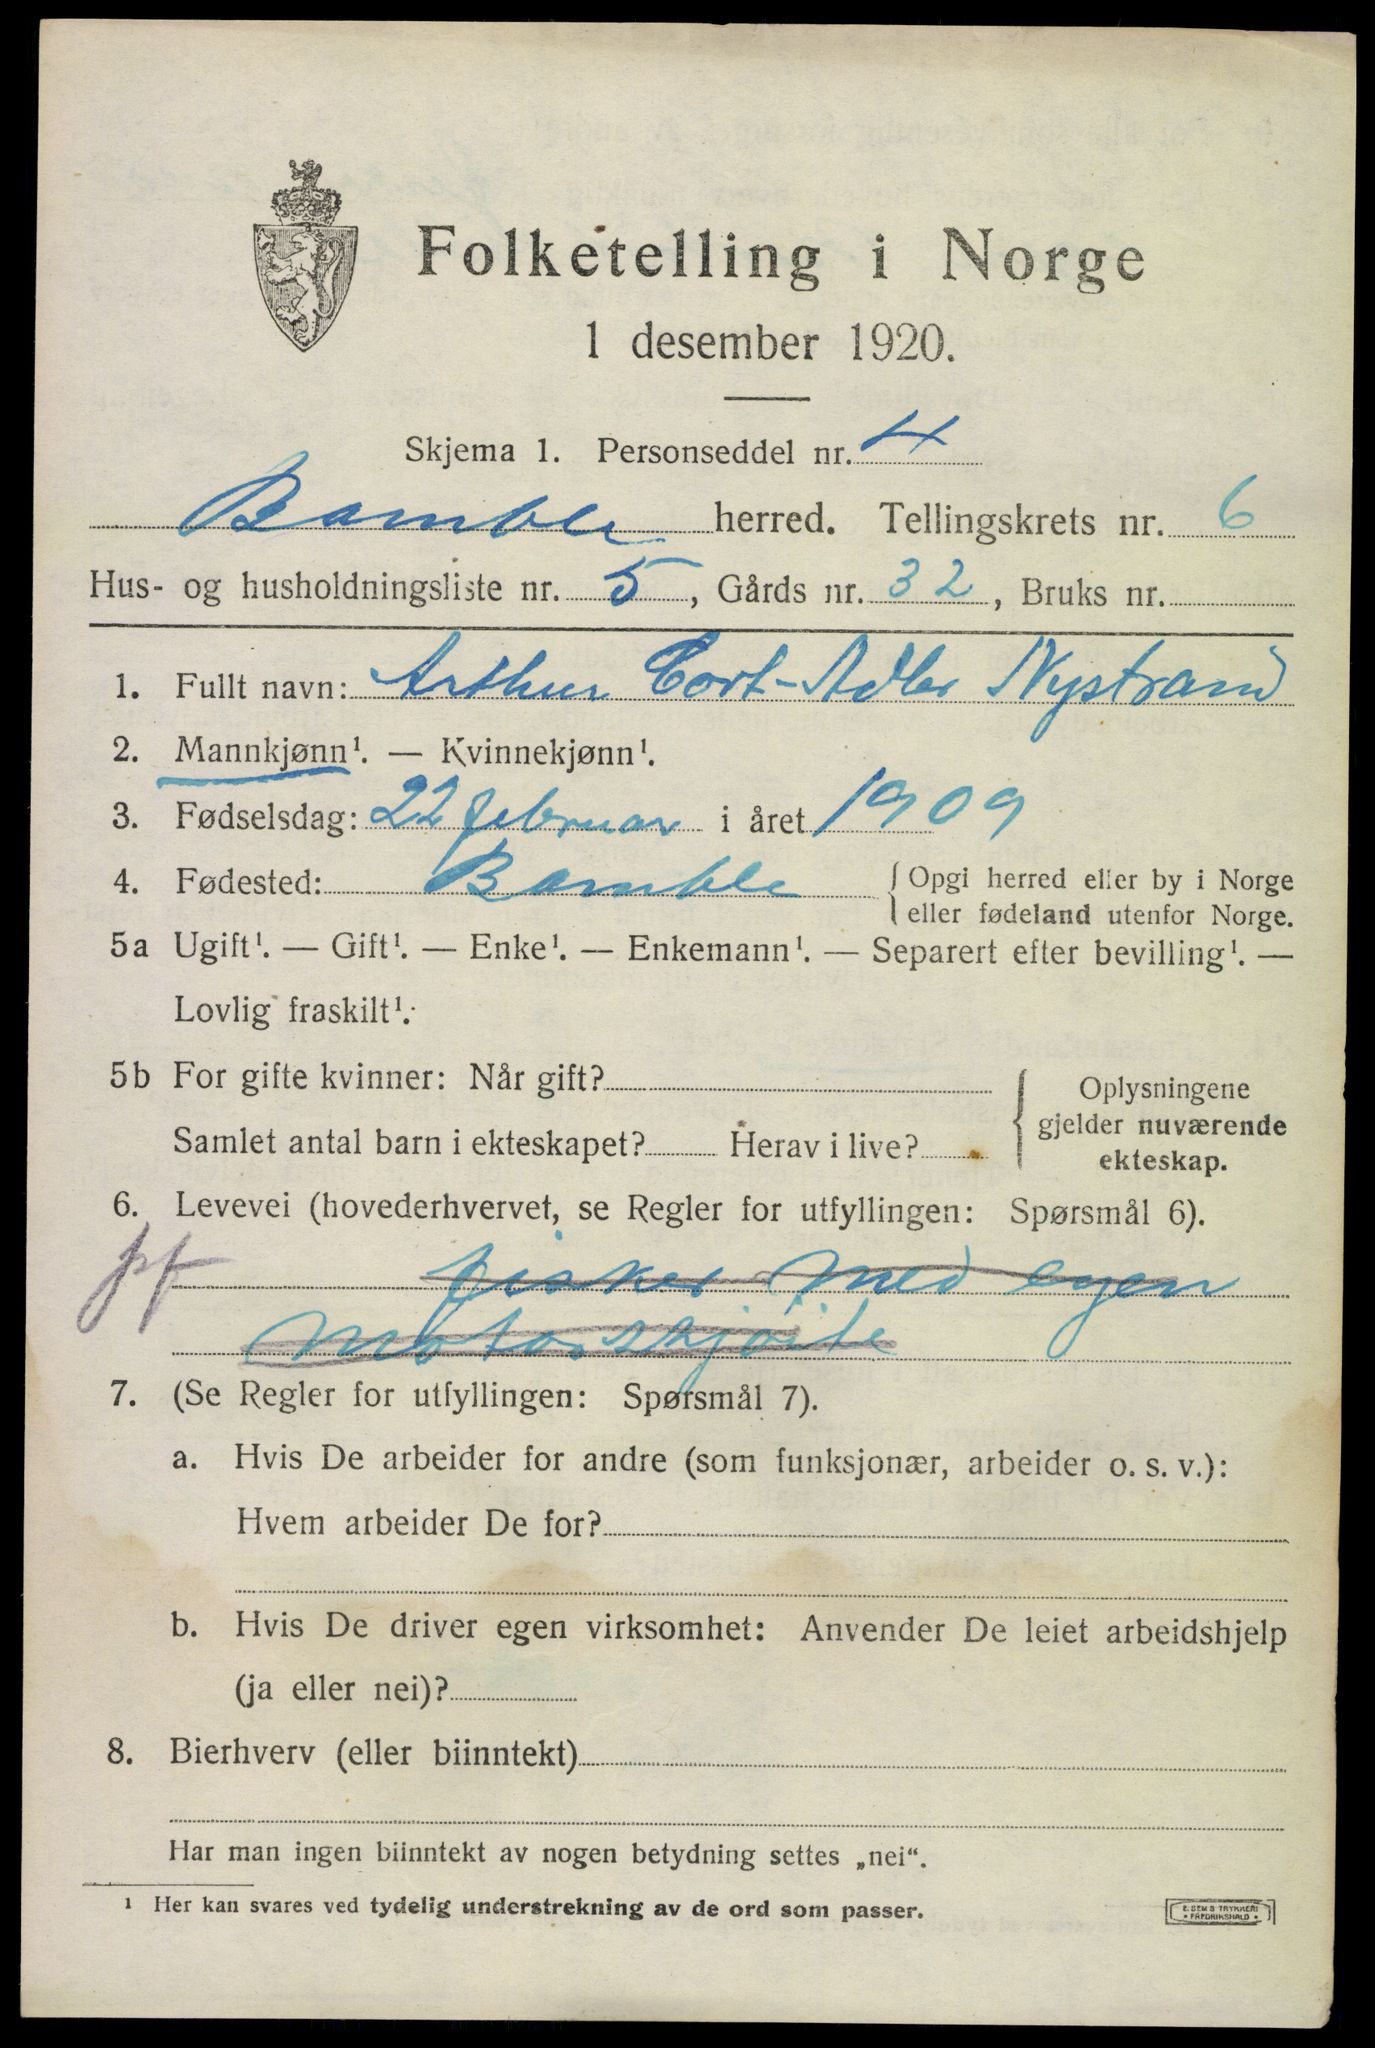 Folketelling i Norge
1 desember 1920.
Skjema 1. Personseddel nr. 4
Bamble herred. Tellingskrets nr. 6
Hus- og husholdningsliste nr. 5, Gårds nr. 32, Bruks nr.
1. Fullt navn: Arthur Cort-Adler Nystrand
2. Mannkjønn¹. — Kvinnekjønn¹.
3. Fødselsdag: 22 februar i året 1909
4. Fødested: Bamble { Opgi herred eller by i Norge
eller fødeland utenfor Norge.
5a Ugift¹. — Gift¹. — Enke¹. — Enkemann¹. — Separert efter bevilling¹. —
Lovlig fraskilt¹.
5b For gifte kvinner: Når gift?
Samlet antal barn i ekteskapet? Herav i live?
{ Oplysningene
gjelder nuværende
ekteskap.
6. Levevei (hovederhvervet, se Regler for utfyllingen: Spørsmål 6).
pf fisker med egen
motorskjöite
7. (Se Regler for utfyllingen: Spørsmål 7).
a. Hvis De arbeider for andre (som funksjonær, arbeider o. s. v.):
Hvem arbeider De for?
b. Hvis De driver egen virksomhet: Anvender De leiet arbeidshjelp
(ja eller nei)?
8. Bierhverv (eller biinntekt)
Har man ingen biinntekt av nogen betydning settes „nei“.
¹ Her kan svares ved tydelig understrekning av de ord som passer.
E. SEMS TRYKKERI
• FREDRIKSHALD •